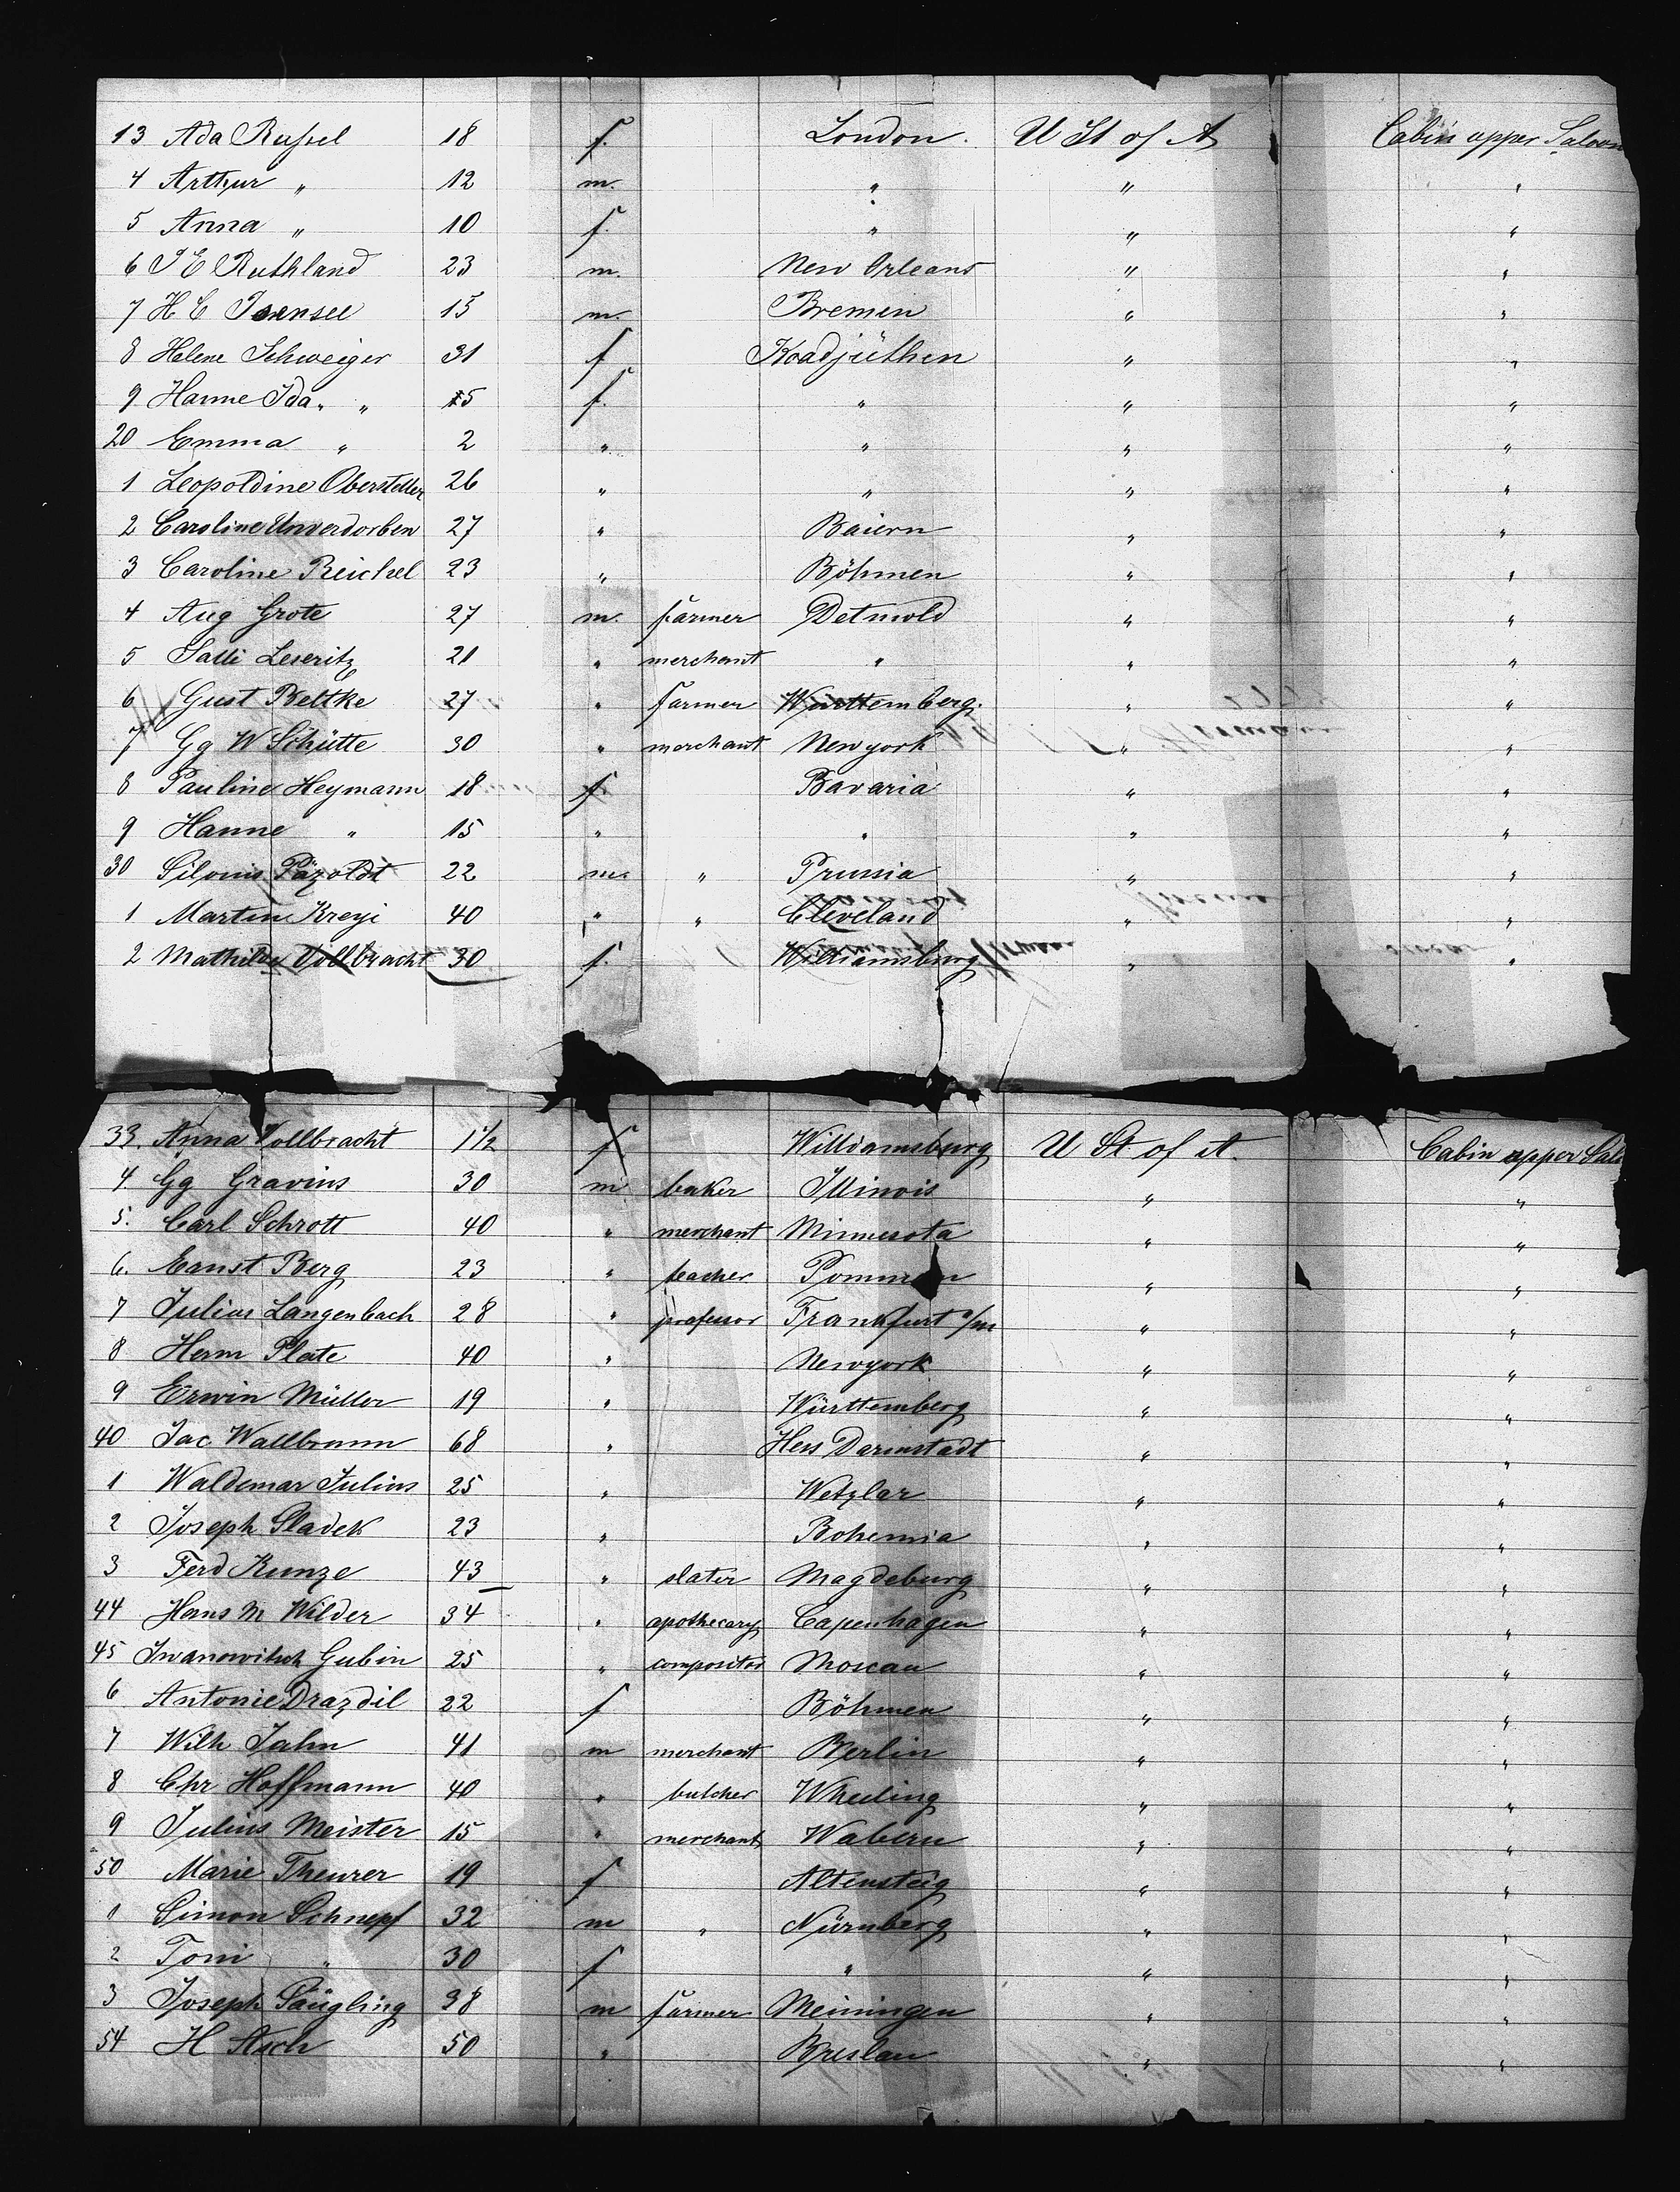 13 Ada Russel 18 f. London. U St of A Cabin upper Saloon
4 Arthur " 12 m. " " "
5 Anna " 10 f. " " "
6 J E Ruthland 23 m. New Orleans " "
7 H C Isensee 15 m. Bremen " "
8 Helene Schweiger 31 f Koadjuthen " "
9 Hanne Ida " " 5 f. " " "
20 Emma " 2 " " " "
1 Leopoldine Obersteller 26 " " " "
2 Caroline Unverdorben 27 " Baiern " "
3 Caroline Reichel 23 " Böhmen " "
4 Aug Grote 27 m. farmer Detmold " "
5 Salli Leseritz 21 " merchant " " "
6 Gust Beltke 27 " farmer Württemberg. " "
7 Gg W Schütte 30 " merchant Newyork " "
8 Pauline Heymann 18 f Bavaria " "
9 Hanne " 15 " " " "
30 Päzoldt 22 m. " Prussia " "
1 Martin Kreyi 40 " " Cleveland " "
2 Mathilde Vollbracht 30 f. Williamsburg " "
33. Anna Vollbracht 1½ f Williamsburg U St of A. Cabin upper Salo
4. Gg Gravius 30 m baker Illinois " "
5. Carl Schrott 40 " merchant Minnesota " "
6. Ernst Berg 23 " teacher Pommern " "
7 Julius Langenbach 28 " professor Frankfurt a/m " "
8 Herm Plate 40 " Newyork " "
9 Erwin Müller 19 " Württemberg " "
40 Jac Wallbrunn 68 " Hess Darmstadt " "
1 Waldemar Julius 25 " Wetzlar " "
2 Joseph Sladek 23 " Bohemia " "
3 Ferd Kunze 43 " slater Magdeburg " "
44 Hans M Wilder 34 " apothecary Capenhagen " "
45 Iwanowitsch Gubin 25 " compositor Moscau " "
6 Antonie Drazdil 22 f Böhmen " "
7 Wilh Jahn 41 m merchant Berlin " "
8 Chr Hoffmann 40 " butcher Wheeling " "
9 Julius Meister 15 " merchant Wabern " "
50 Marie Theurer 19 f Altensteig " "
1 Simon Schnepf 32 m " Nürnberg " "
2 Toni " 30 f " " "
3 Joseph Säugling 38 m farmer Meiningen " "
54 H Asch 50 " Breslau " "